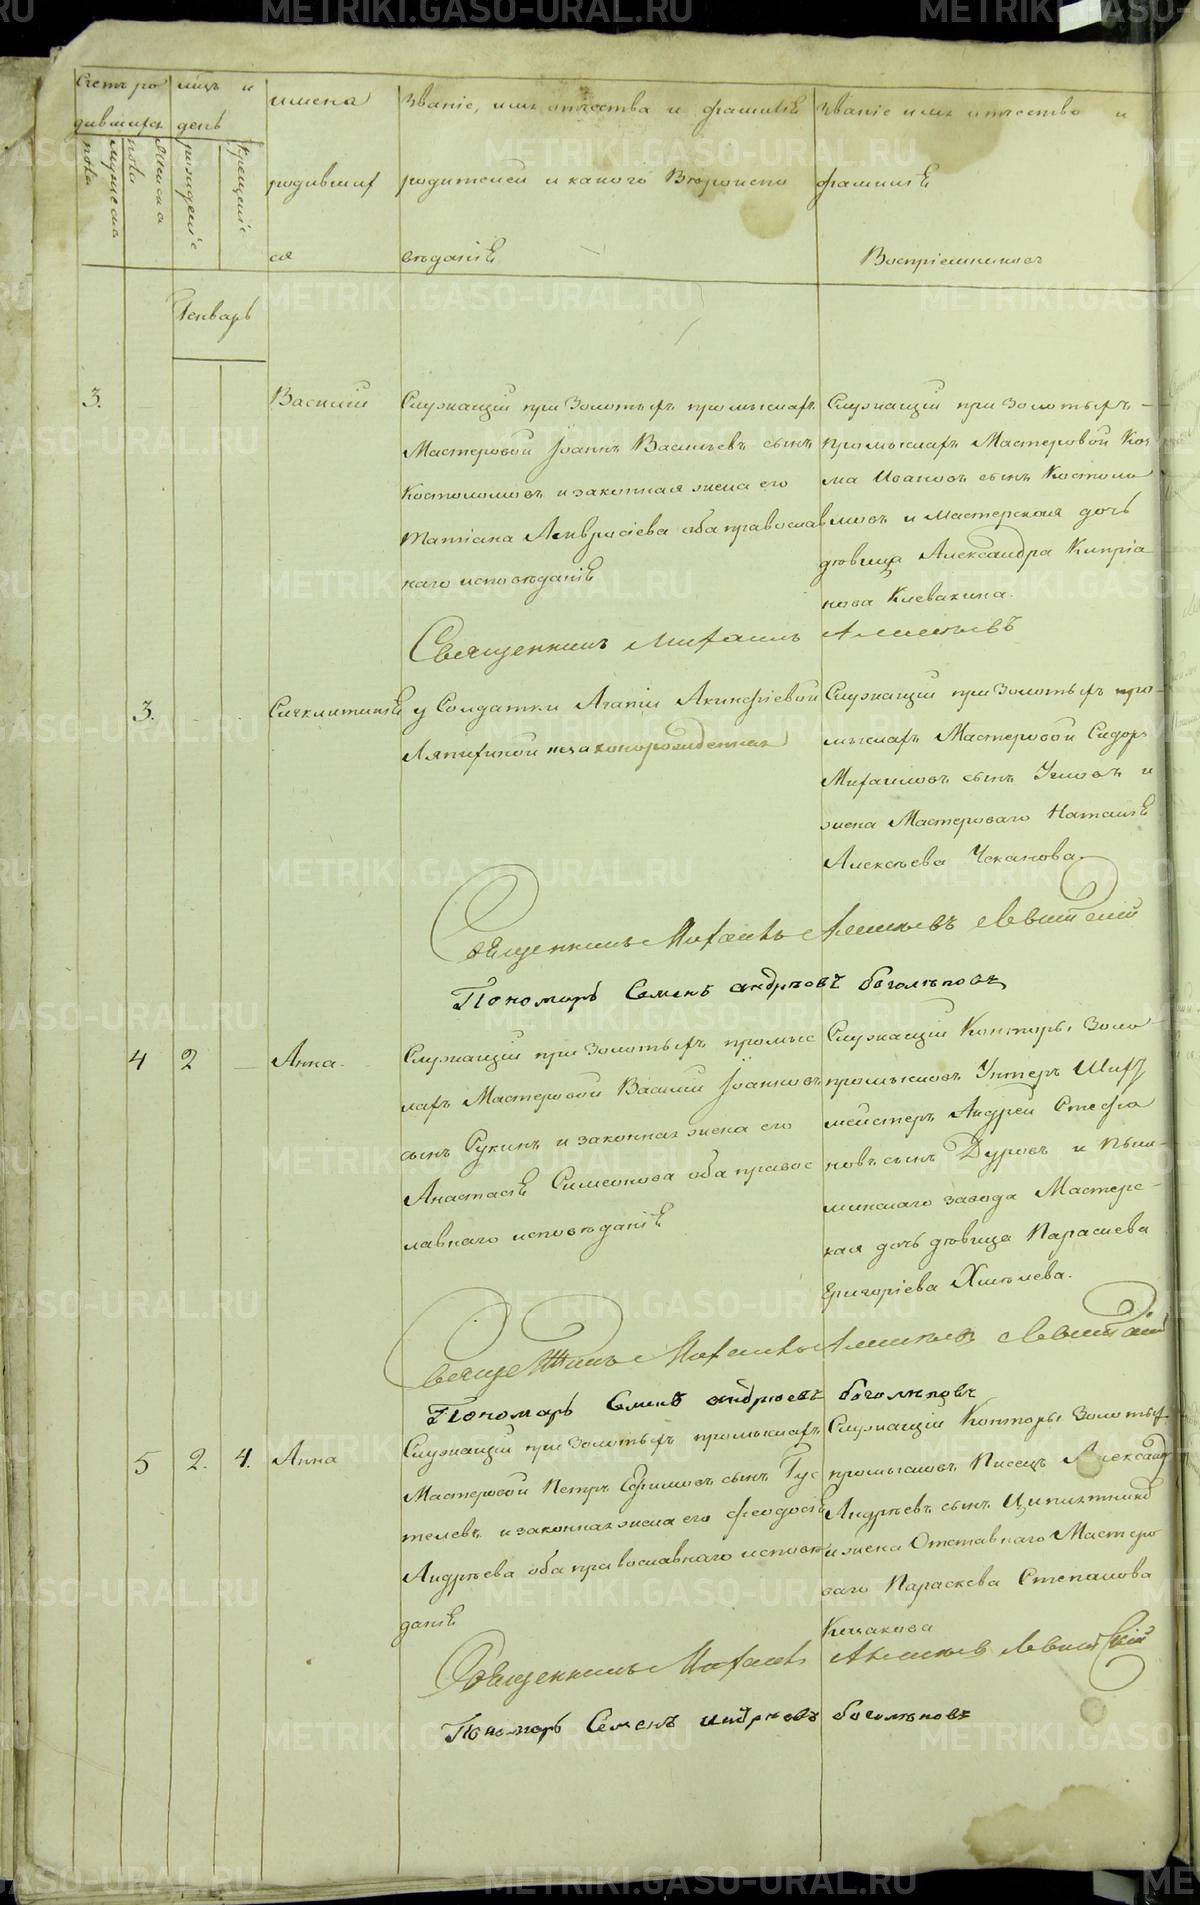 Счетъ ро
дившихся
мужеска пола
женска пола
мцъ и
день
рожденіе
крещеніе
имена
родивших
ся
Званіе, имя отчества и фамилія
родителей и какого Вѣроиспо
вѣданія
Званіе имя отчество и
фамилія
Воспріемниковъ
Генварь
3.
Василій
Служащій при Золотыхъ промыслахъ
Мастеровой Іоаннъ Васильевъ сынъ
Костоломовъ и законная жена его
Татіана Амвросіева оба православ
наго исповѣданія
Служащій при Золотыхъ
промыслахъ Мастеровой Коз
ма Ивановъ сынъ Костоло
мовъ и мастерская дочь
дѣвица Александра Кипріа
нова Клевакина.
Священникъ Михаилъ
3.
у Солдатки Агапіи Акинфіевой
Ляпихиной незаконорожденная
Служащій при Золотыхъ про-
мыслахъ Мастеровой Сидоръ
Михаиловъ сынъ и
жена Мастероваго Наталія
Алексѣева Чеканова.
Священникъ Михаилъ Левитскій
Пономарь Семенъ Андрѣевъ боголѣповъ
4
2
Анна.
Служащій при Золотыхъ промыс
лахъ Мастеровой Василій Іоанновъ
сынъ Сукинъ и законная жена его
Анастасія Симеонова оба правос
лавнаго исповѣданія
Служащій Конторы Золо
промысловъ Унтеръ Шихт
мейстеръ Андрей Стефа
новъ сынъ Дуровъ и Пыш-
минскаго завода Мастерс-
кая дочь дѣвица Параскева
Григоріева Хмѣлева.
Священникъ Михаилъ Левитскій
Пономарь Семенъ андрѣевъ боголѣповъ
5
2.
4.
Анна
Служащій при Золотыхъ промыслахъ
Мастеровой Петръ Ефимовъ сынъ Гус
телевъ и законная жена его Феодосія
Андрѣева оба православнаго исповѣ
данія
Служащій Конторы Золотых
промысловъ Писецъ Александр
Андрѣевъ сынъ
и жена Отставнаго Мастеро
ваго Параскева Степанова
Священникъ Михаилъ Левитскій
Пономарь Семенъ андрѣевъ боголѣповъ
METRIKI.GASO-URAL.RU